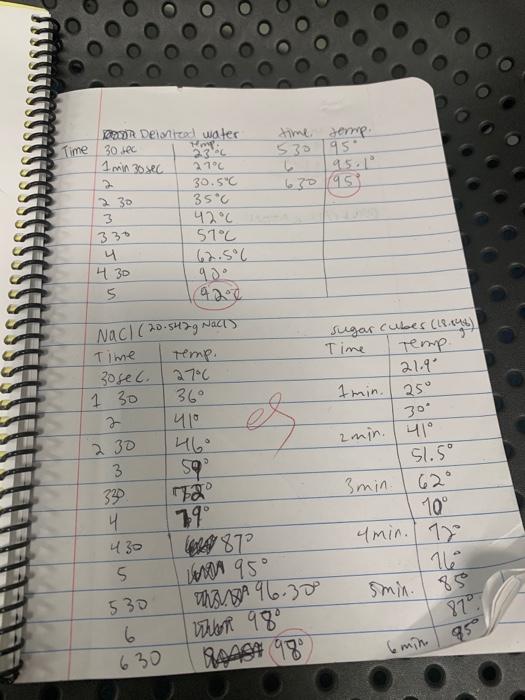 Deionized water time temp.
Time 30 sec temp. 23°C 530 95°
1 min 30 sec 27°C 6 95.1°
2 30.5°C 630 95°
2 30 35°C
3 42°C
330 57°C
4 62.5°C
4 30 90°
5 92°C
NaCl (20.542g NaCl) sugar cubes (18.146g)
Time Temp. Time Temp.
30 sec. 27°C 21.9°
1 30 36° 1 min. 25°
2 41° 30°
2 30 46° 2 min. 41°
3 59° 51.5°
330 72° 3 min. 62°
4 79° 70°
430 87° 4 min. 72°
5 95° 76°
530 96.30° 5 min. 85°
6 98° 87°
630 98° 6 min 95°